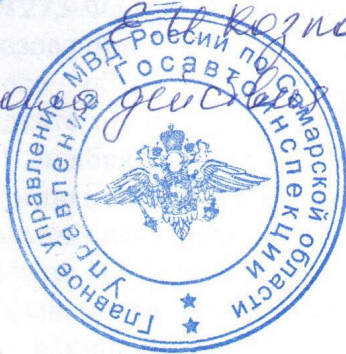 Е.И. Козло
действия
Главное управление МВД России по Самарской области
Управление Госавтоинспекции